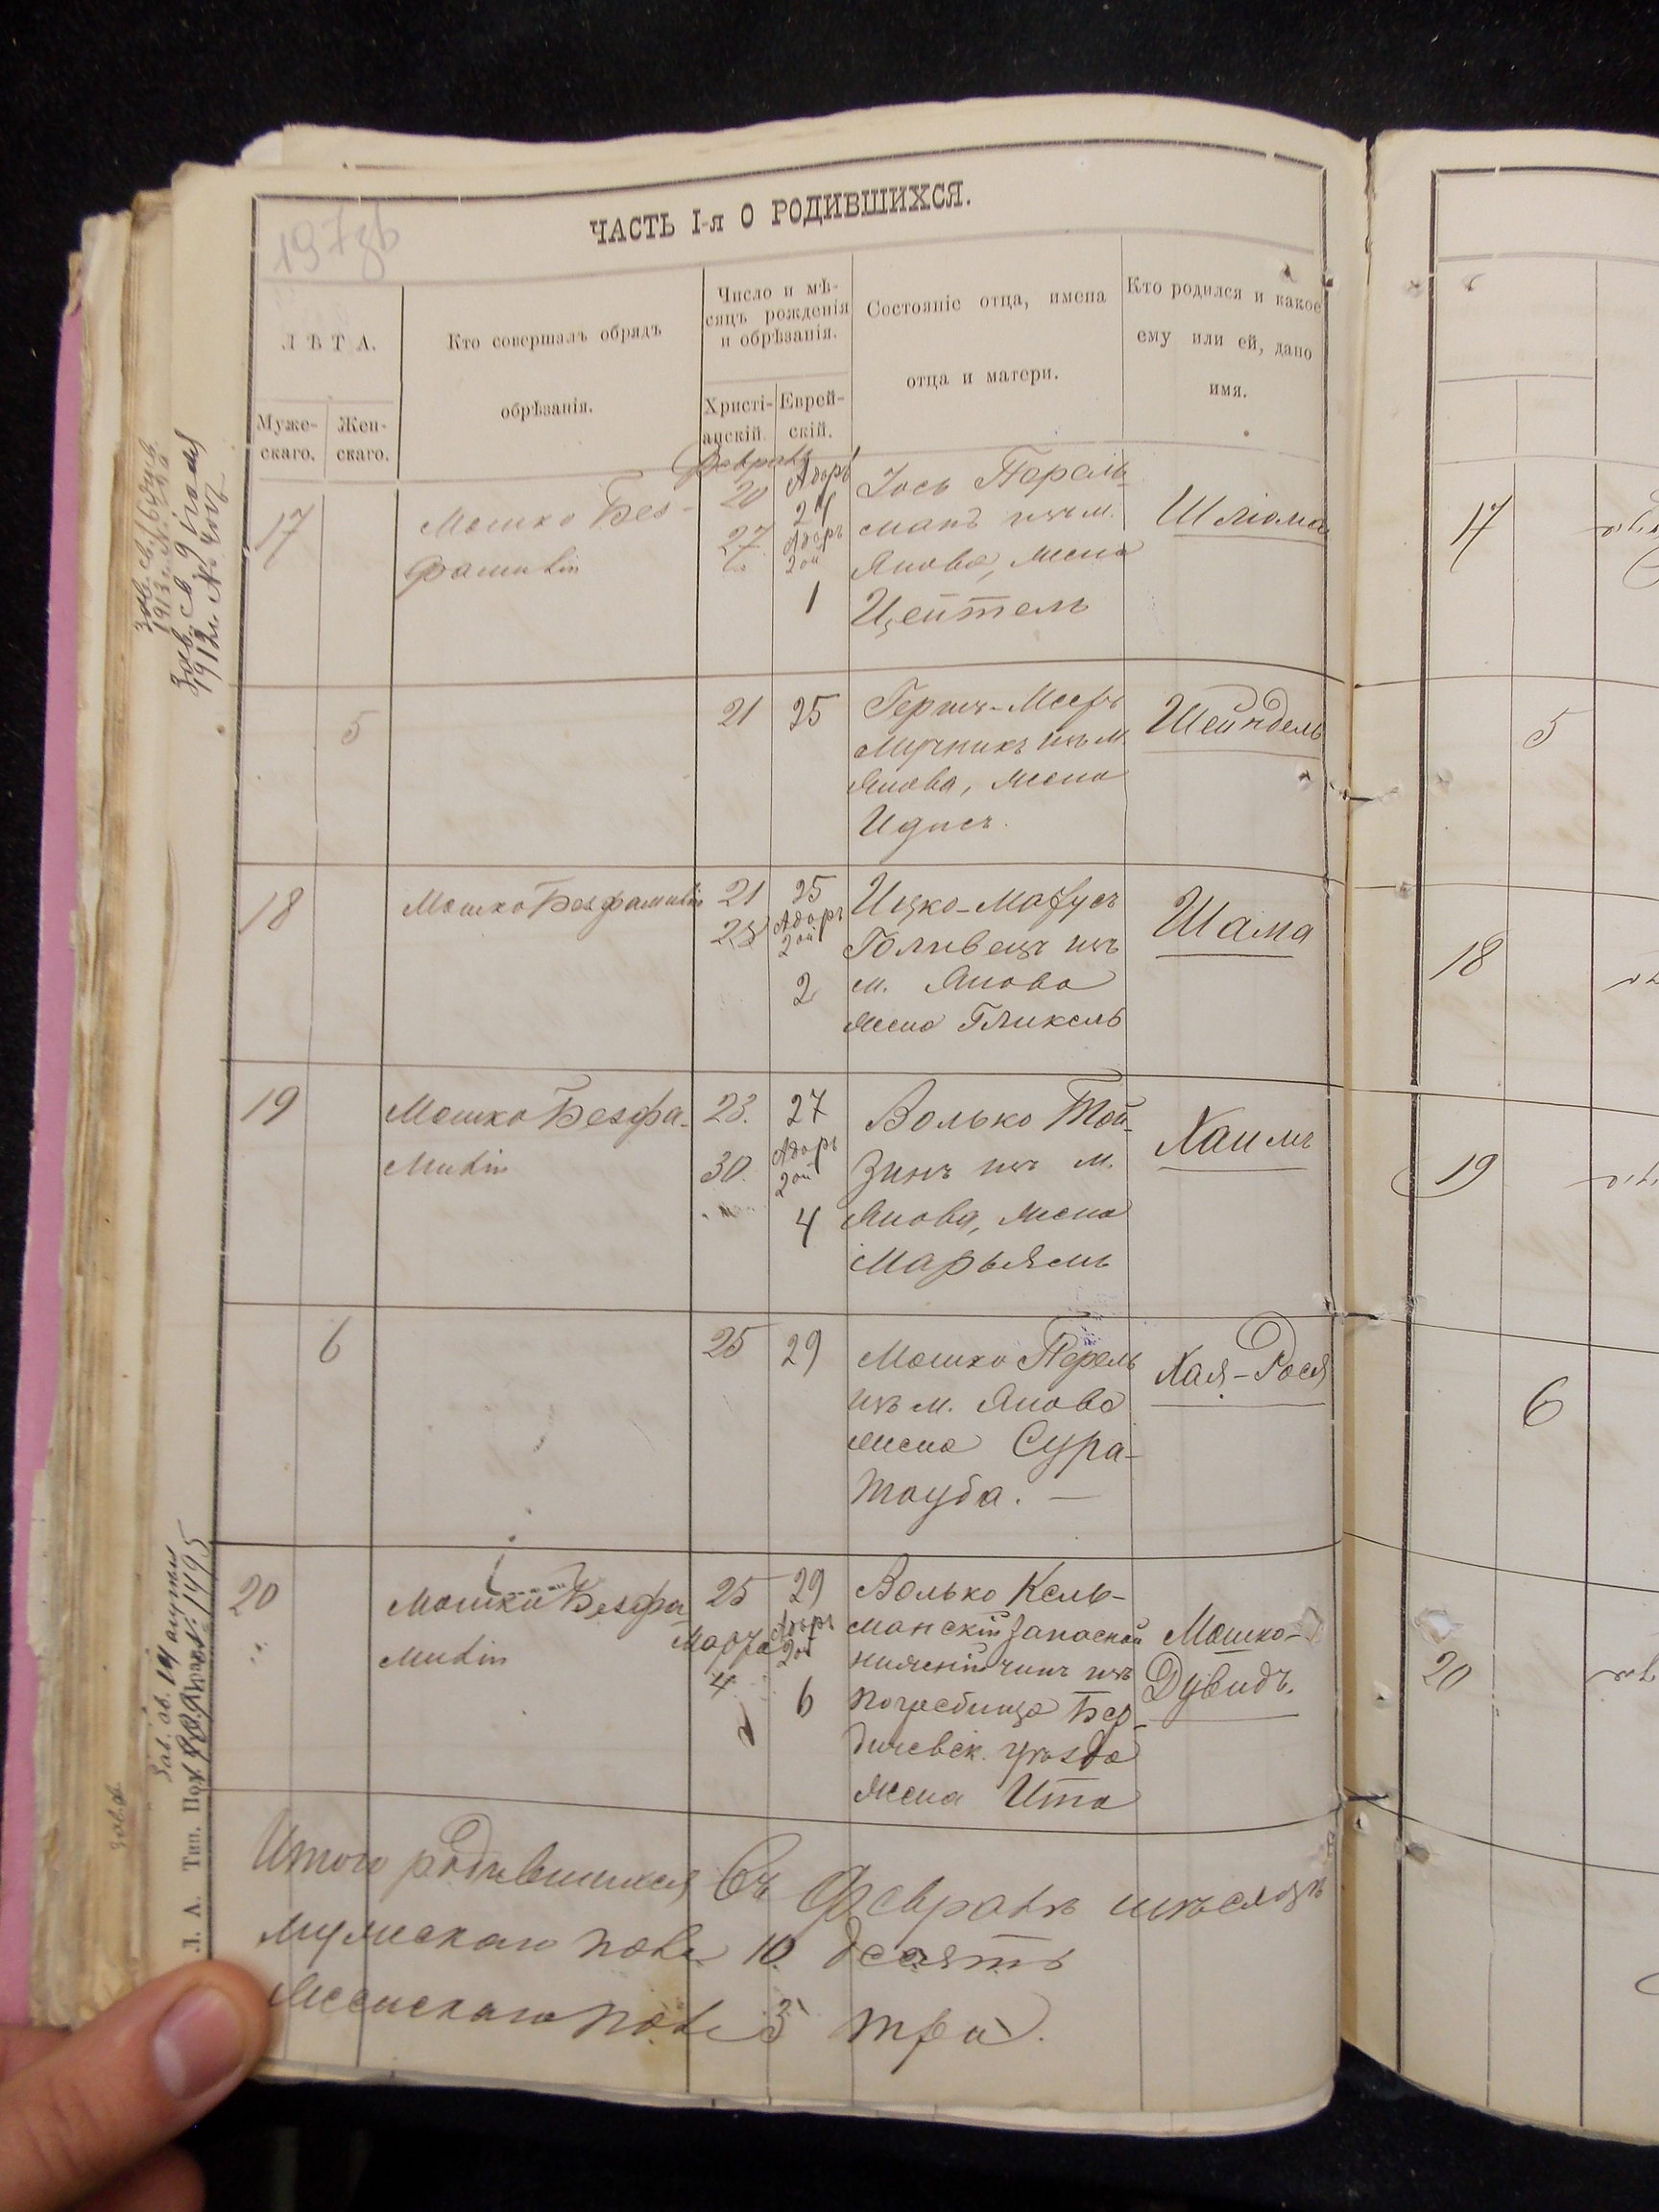 197зв
ЧАСТЬ I-я О РОДИВШИХСЯ.
ЛѢТА.
Муже-
скаго.
Жен-
скаго.
Кто совершалъ обрядъ
обрѣзанія.
Число и мѣ-
сяцъ рожденія
и обрѣзанія.
Христі-
анскій.
Еврей-
скій.
Состояніе отца, имена
отца и матери.
Кто родился и какое
ему или ей, дано
имя.
17
Мошко Без-
фамилій
Февраль
20
27
Адоръ
24
Адоръ
2ой
1
Іось Перель-
манъ изъ м.
Янова, жена
Цейтель
Шліома
5
21
25
Гершъ-Мееръ
Мучникъ изъ м.
Янова, жена
Идисъ.
Шейндель
18
Мошко Безфамилій
21
28
25
Адоръ
2ой
2
Ицко-Маркусъ
изъ
м. Янова
жена Гликель
Шама
19
Мошко Безфа-
милій
23.
30.
27
Адоръ
2ой
4
Волько Той-
зинъ изъ м.
Янова, жена
Марьямъ
Хаимъ
6
25
29
Мошко Перель
изъ м. Янова
жена Сура-
Тауба. —
Хая-Рося
20
Мошко Безфа-
милій
25
Марта
4
29
Адоръ
2ой
6
Волько Кель-
манскій запасной
нижній чинъ изъ
Погребища Бер-
дичевск. уѣзда
жена Ита
Мошко-
Дувидъ.
Итого родившихся въ Февралѣ мѣсяцѣ
мужескаго пола 10 десять
женскаго пола 3 три.
17
5
18
19
6
20